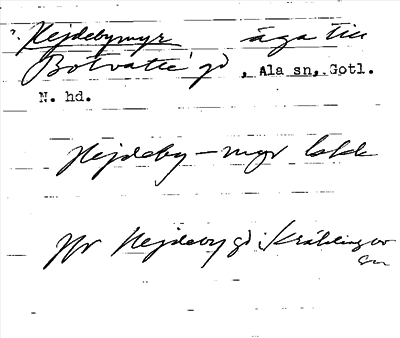 Hejdebymyr äga till
Botvatte gd, Ala sn, Gotl.
N. hd.
Hejdeby-myr
Hejdeby gd i Kräklingbo
sn